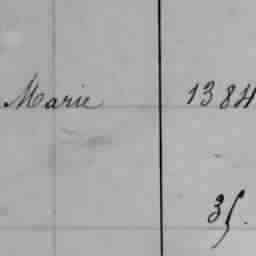 Marie 1384
35.